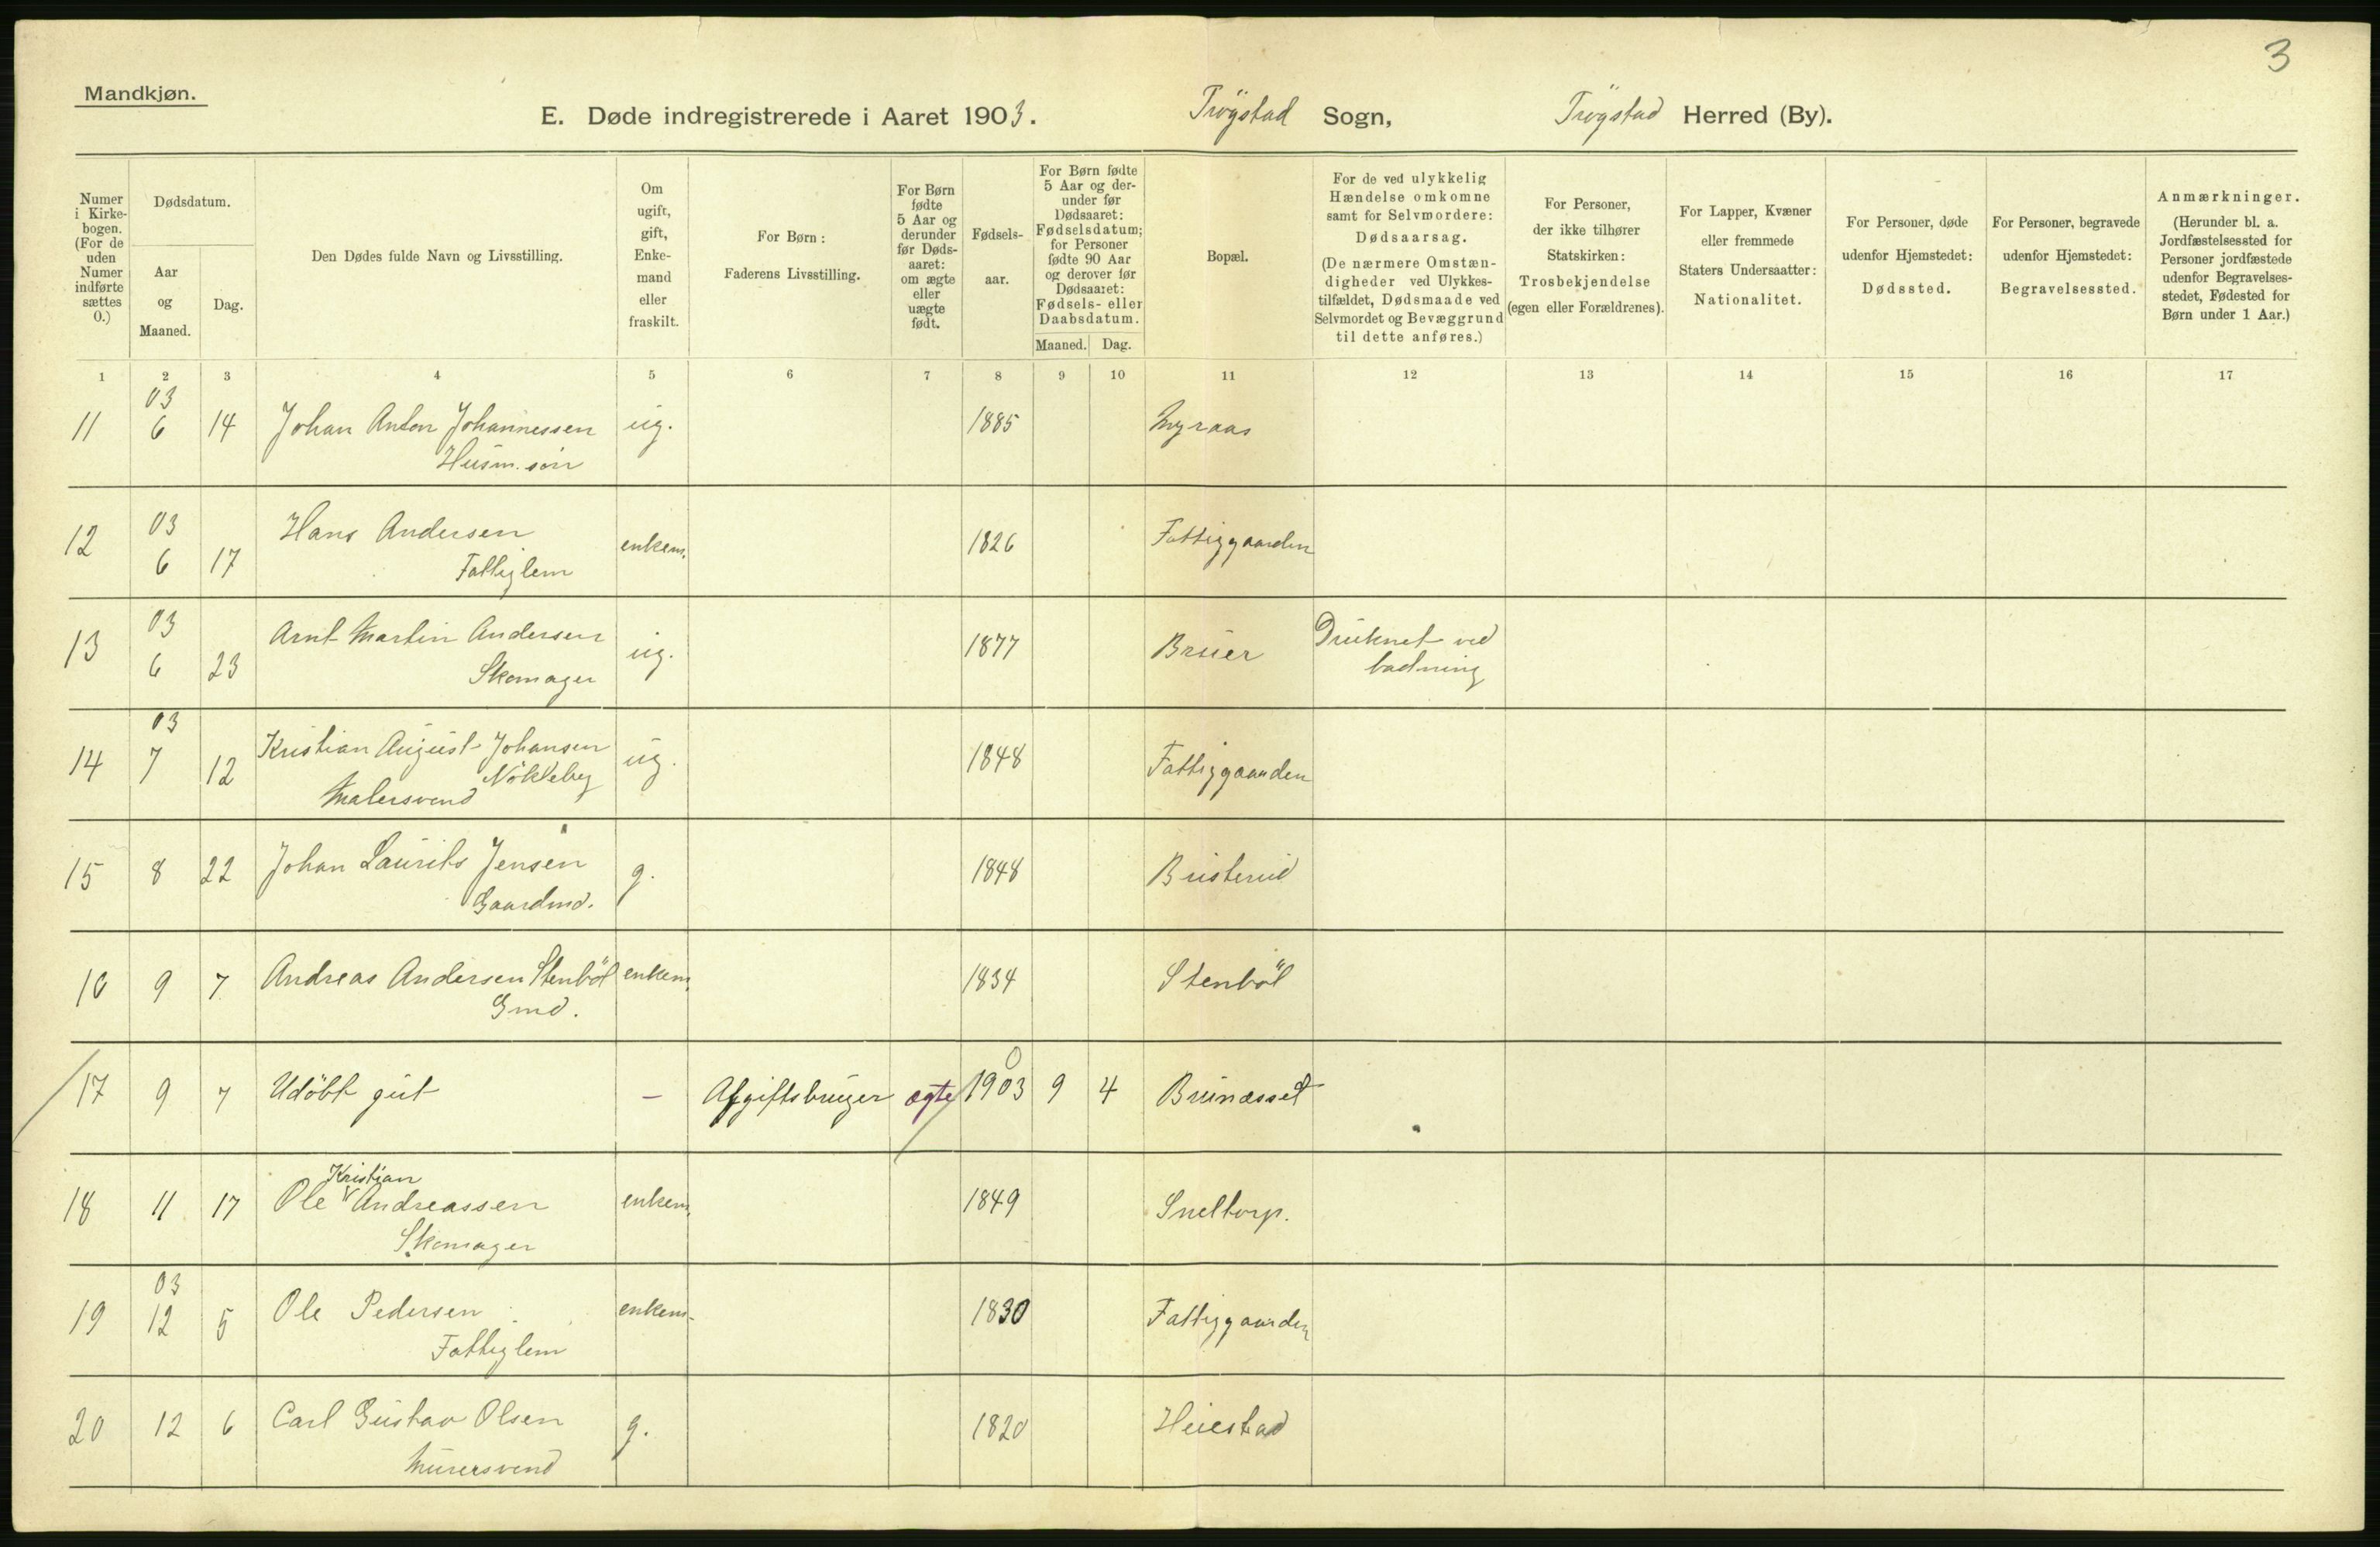 3
Mandkjøn.
E. Døde indregistrerede i Aaret 1903. Trögstad Sogn, Trögstad Herred (By).
Numer i Kirkebogen. (For de uden Numer indførte sættes 0.)
Dødsdatum.
Aar og Maaned.
Dag.
Den Dødes fulde Navn og Livsstilling.
Om ugift, gift, Enkemand eller fraskilt.
For Børn: Faderens Livsstilling.
For Børn fødte 5 Aar og derunder før Dødsaaret: om ægte eller uægte født.
Fødselsaar.
For Børn fødte 5 Aar og derunder før Dødsaaret: Fødselsdatum; for Personer fødte 90 Aar og derover før Dødsaaret: Fødsels- eller Daabsdatum.
Maaned. Dag.
Bopæl.
For de ved ulykkelig Hændelse omkomne samt for Selvmordere: Dødsaarsag. (De nærmere Omstændigheder ved Ulykkestilfældet, Dødsmaade ved Selvmordet og Bevæggrund til dette anføres.)
For Personer, der ikke tilhører Statskirken: Trosbekjendelse (egen eller Forældrenes).
For Lapper, Kvæner eller fremmede Staters Undersaatter: Nationalitet.
For Personer, døde udenfor Hjemstedet: Dødssted.
For Personer, begravede udenfor Hjemstedet: Begravelsessted.
Anmærkninger. (Herunder bl. a. Jordfæstelsessted for Personer jordfæstede udenfor Begravelsesstedet, Fødested for Børn under 1 Aar.)
1 2 3 4 5 6 7 8 9 10 11 12 13 14 15 16 17
03
11 6 14 Johan Anton Johannessen ug. 1885 Myraas
Husm. sön
03
12 6 17 Hans Andersen enkem. 1826 Fattiggaarden
Fattiglem
03
13 6 23 Arnt Martin Andersen ug. 1877 Bruer Druknet ved
Skomager badning
03
14 7 12 Kristian August Johansen ug. 1848 Fattiggaarden
Nökleby
Malersvend
15 8 22 Johan Laurits Jensen g. 1848
Gaardmd.
16 9 7 Andreas Andersen Stenböl enkem. 1834 Stenböl
Gmd.
17 9 7 Udöbt gut - Afgiftsbruger ægte 1903 9 4
Kristian
18 11 17 Ole Andreassen enkem. 1849 Sneltorp.
Skomager
03
19 12 5 Ole Pedersen enkem. 1830 Fattiggaarden
Fattiglem
20 12 6 Carl Gustav Olsen g. 1820
Murersvend